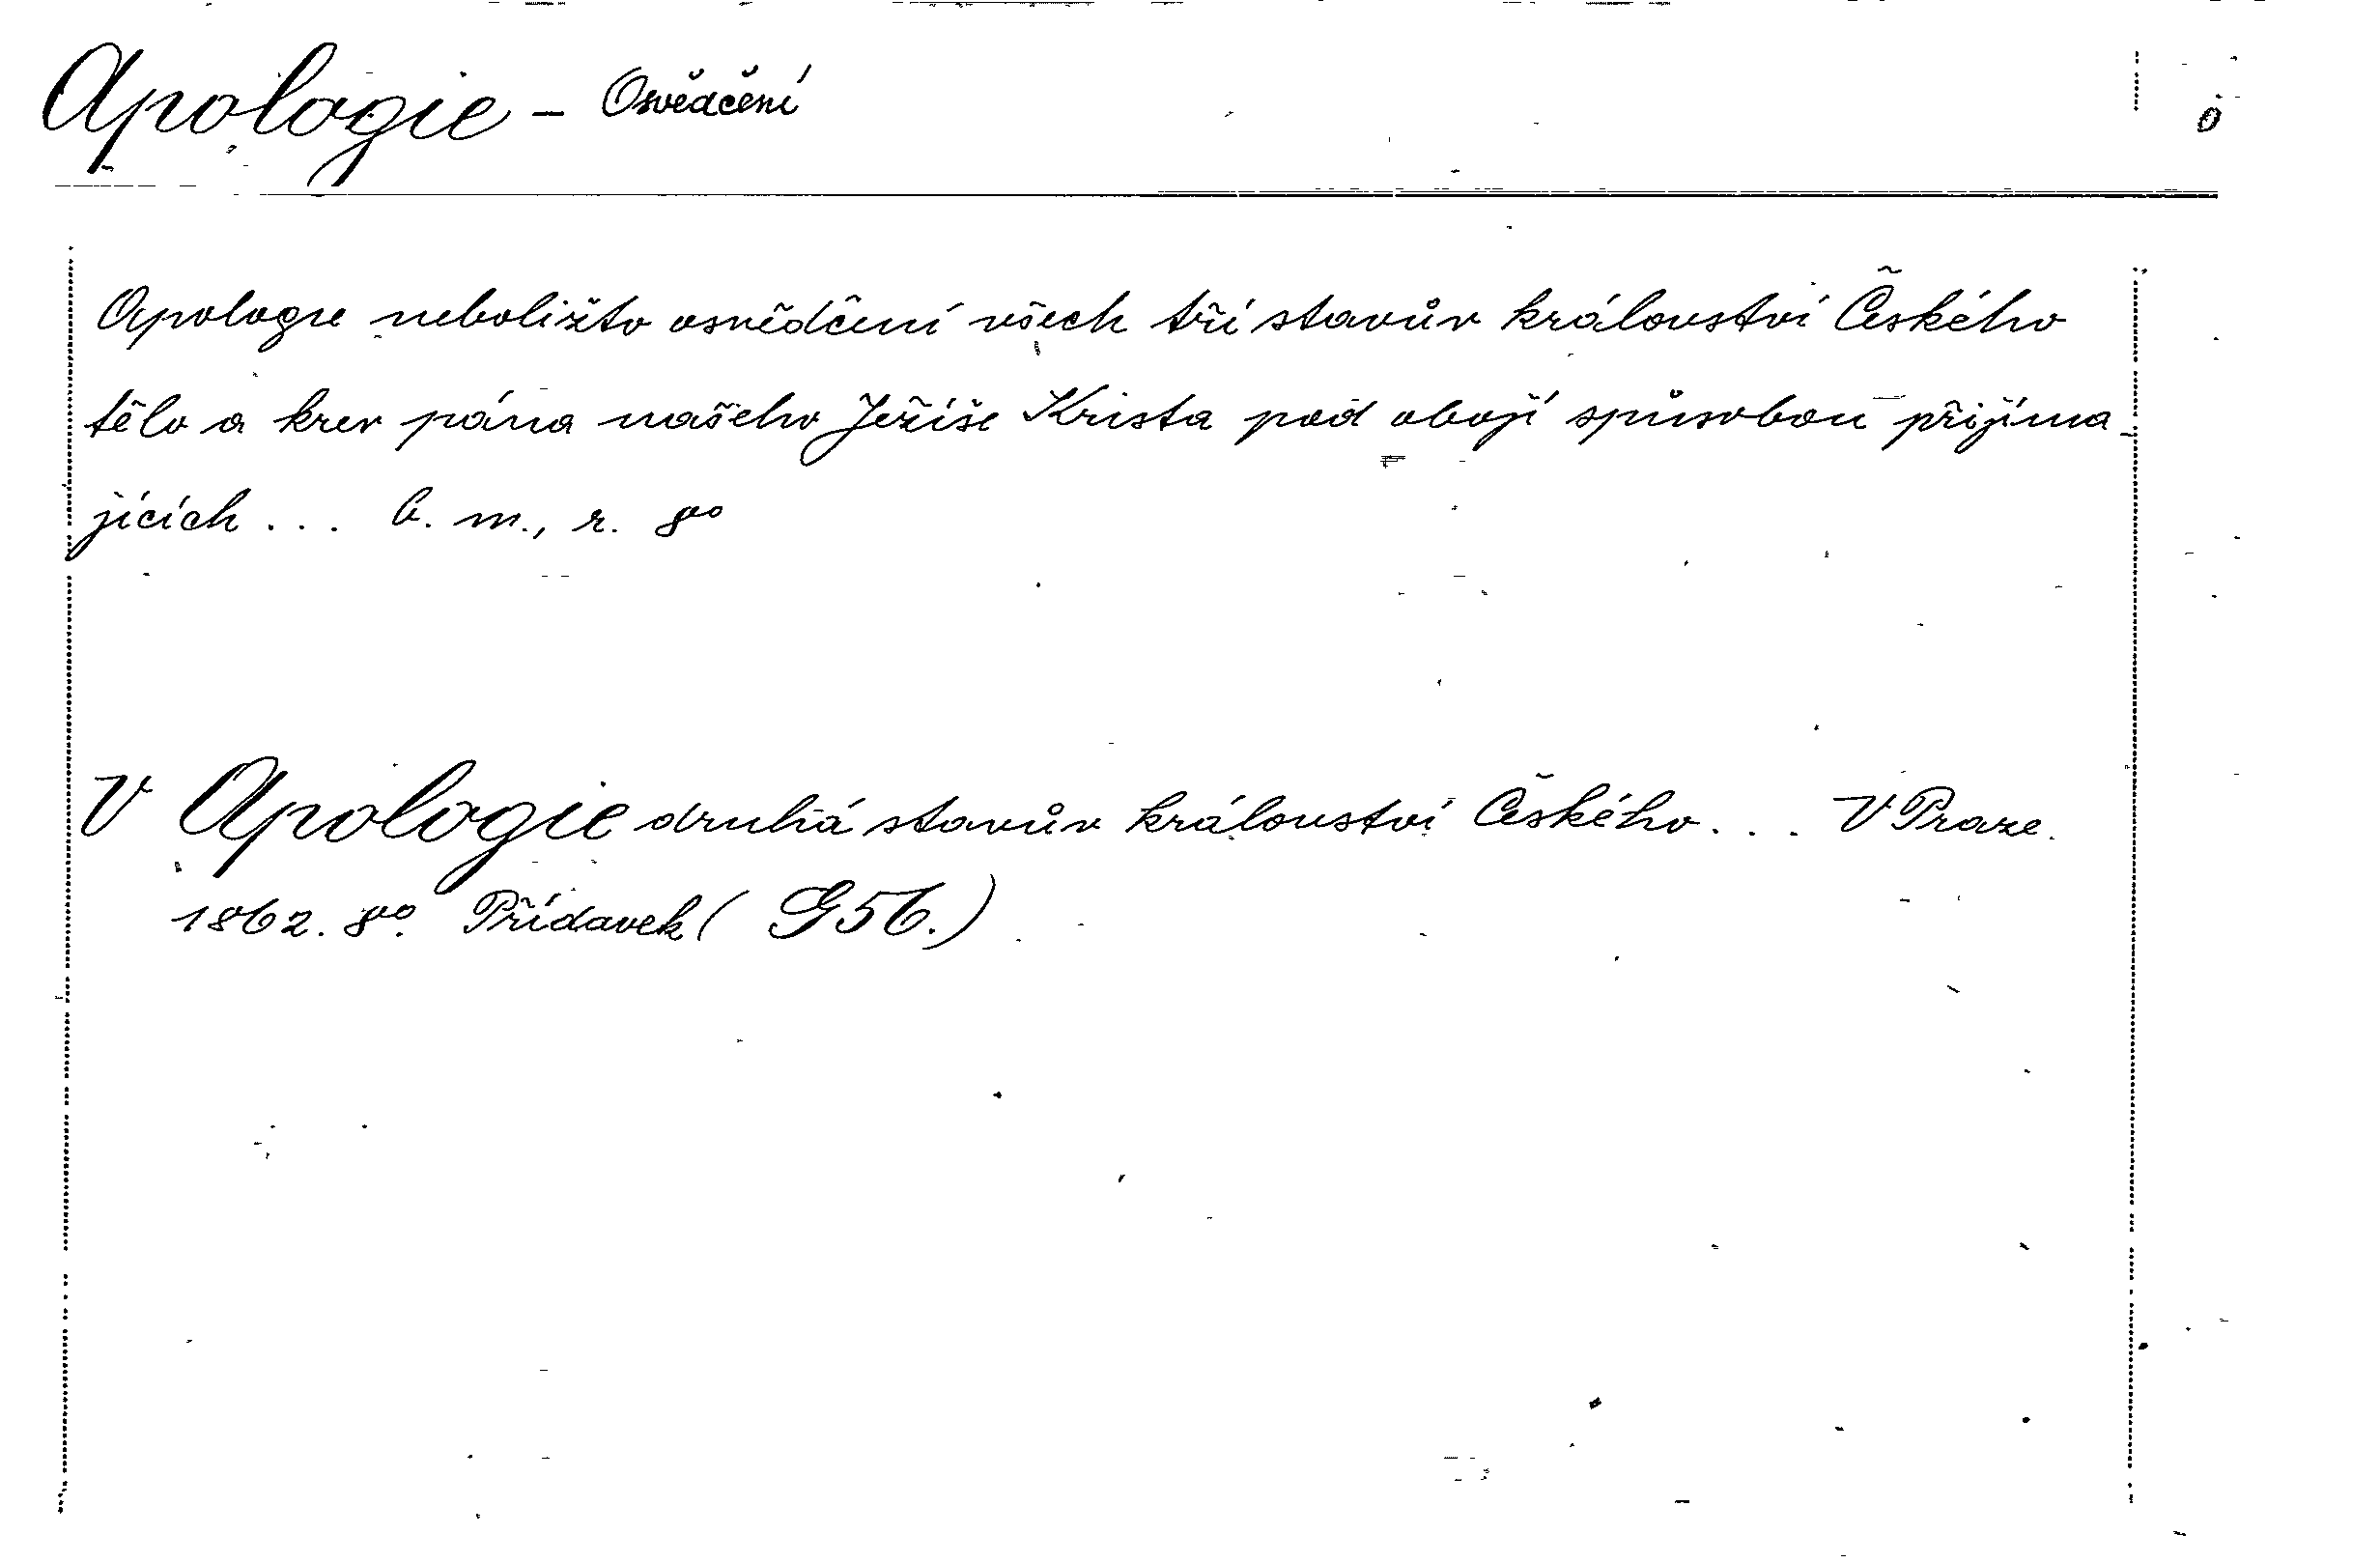 Apologie - Osvědčení
Apologie neboližto osvědčení všech tří stavův království Českého
tělo a krev pána našeho Ježíše Krista pod obojí spůsobou přijíma-
jících ... B. m., r. 8vo
V Apologie druhá stavův království Českého... V Praze.
1862. 8vo. Přídavek ( G56.)